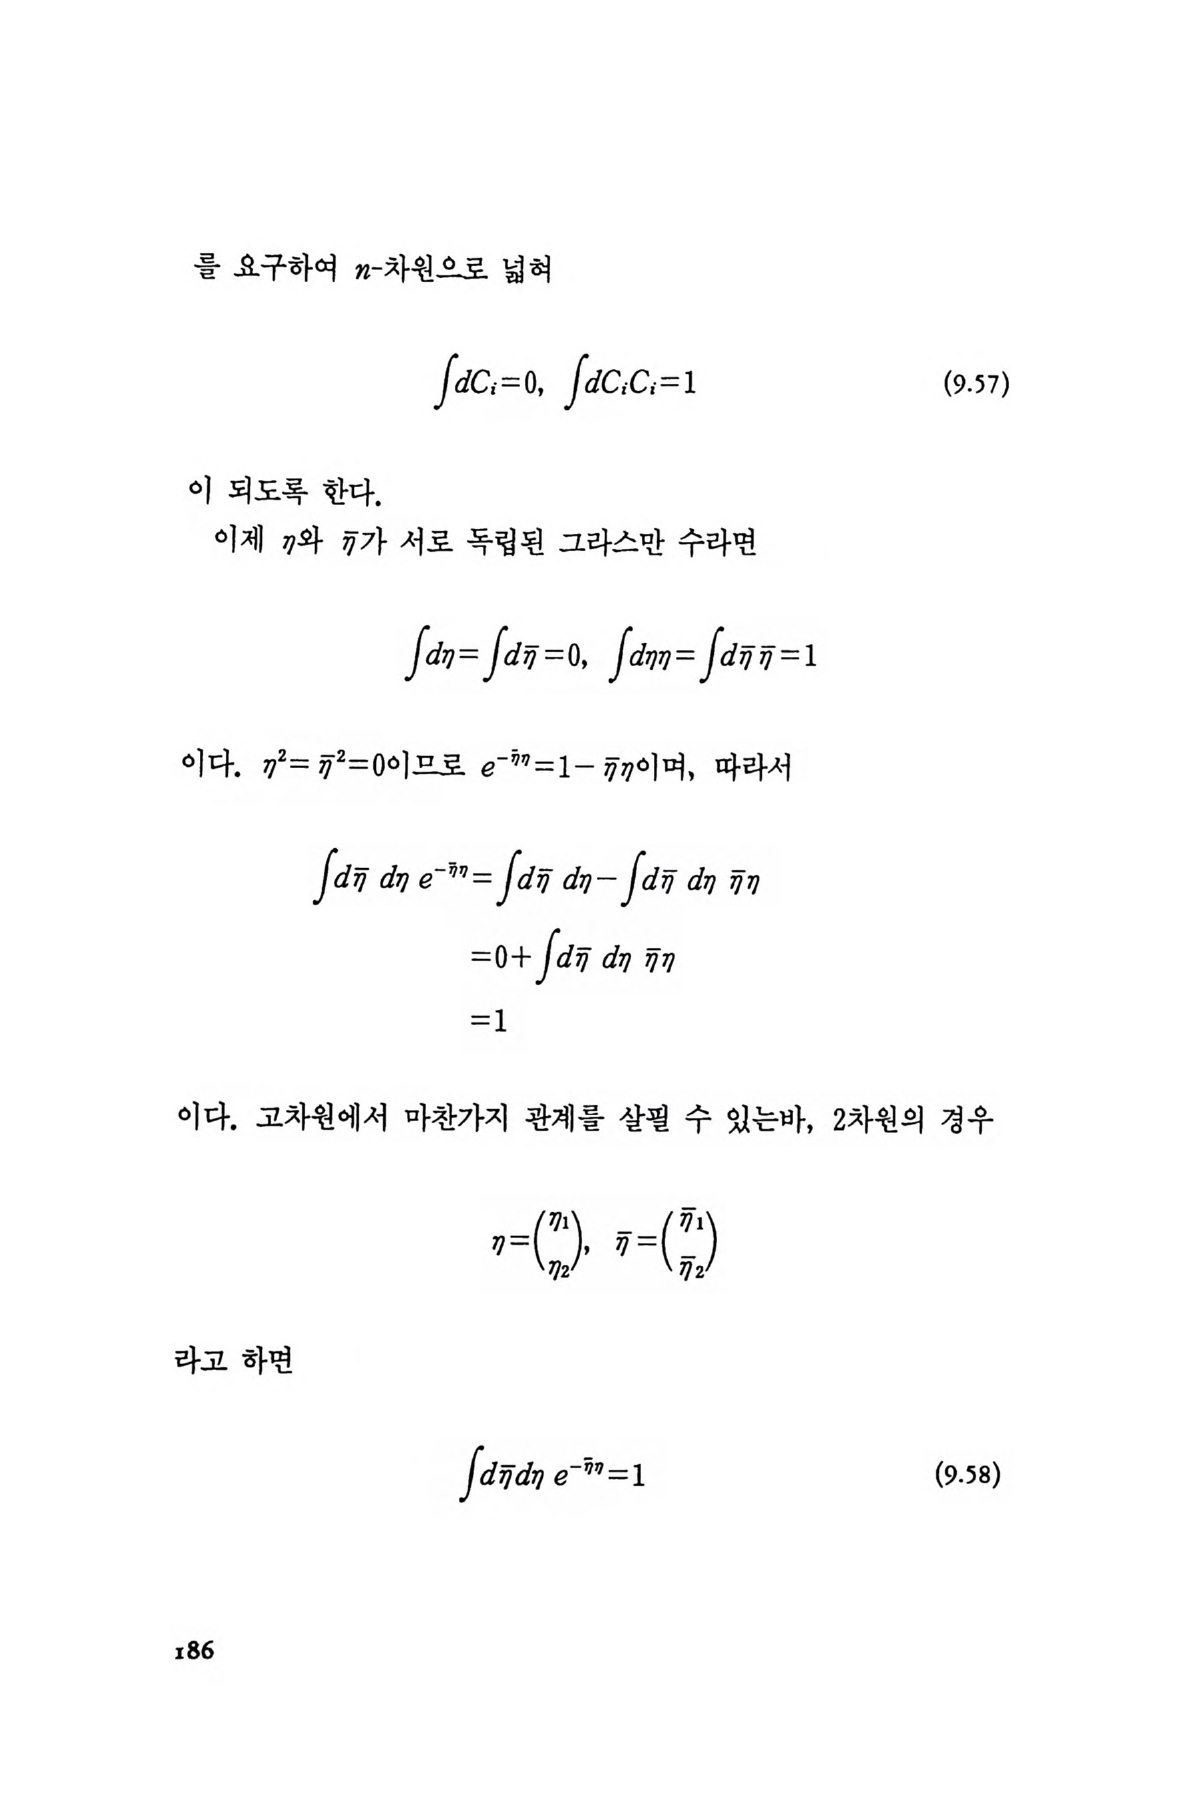 를 요구하여 n-차원으로 넓혀
∫dCᵢ=0, ∫dCᵢCᵢ=1 (9.57)
이 되도록 한다.
이제 η와 η̄가 서로 독립된 그라스만 수라면
∫dη=∫dη̄=0, ∫dηη=∫dη̄ η̄=1
이다. η²= η̄²=0이므로 e^{-η̄η}=1- η̄η이며, 따라서
∫dη̄ dη e^{-η̄η}=∫dη̄ dη-∫dη̄ dη η̄η
=0+∫dη̄ dη η̄η
=1
이다. 고차원에서 마찬가지 관계를 살필 수 있는바, 2차원의 경우
η=(η₁ η₂), η̄=(η̄₁ η̄₂)
라고 하면
∫dη̄dη e^{-η̄η}=1 (9.58)
186